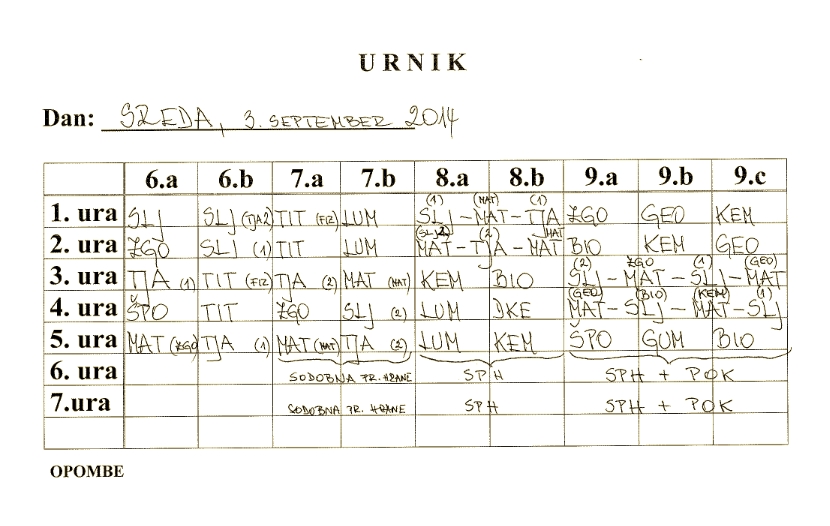 URNIK
Dan: SREDA, 3. SEPTEMBER 2014
6.a 6.b 7.a 7.b 8.a 8.b 9.a 9.b 9.c
(1) (MAT) (1)
1. ura SLJ SLJ (TJA2) TIT (FIZ) LUM SLJ - MAT - TJA ZGO GEO KEM
(SLJ2) (2) MAT
2. ura ZGO SLJ (1) TIT LUM MAT - TJA - MAT BIO KEM GEO
(2) ZGO (1) (GEO)
3. ura TJA (1) TIT (FIZ) TJA (2) MAT (MAT) KEM BIO SLJ - MAT - SLJ - MAT
(GEO) (BIO) (KEM) (1)
4. ura ŠPO TIT ZGO SLJ (2) LUM DKE MAT - SLJ - MAT - SLJ
5. ura MAT (ZGO) TJA (1) MAT (MAT) TJA (2) LUM KEM ŠPO GUM BIO
6. ura SODOBNA PR. HRANE SPH SPH + POK
7.ura SODOBNA PR. HRANE SPH SPH + POK
OPOMBE